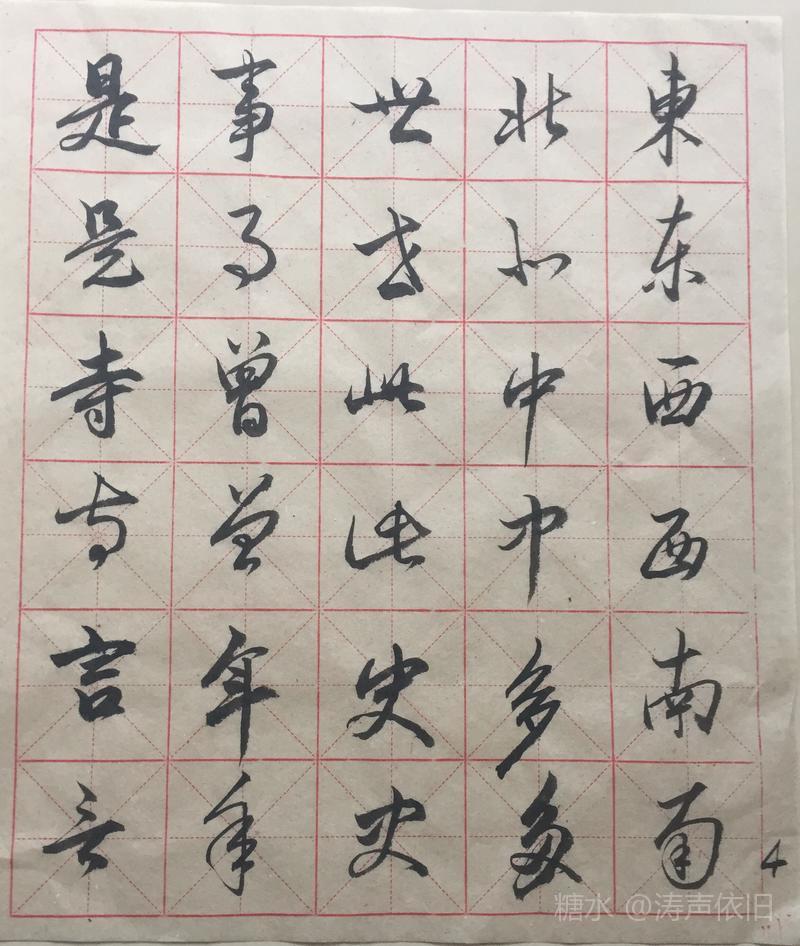 東东西西南南
北北中中多多
世世此此史史
事事曾曾年年
是是寺寺言言
4
糖水 @涛声依旧